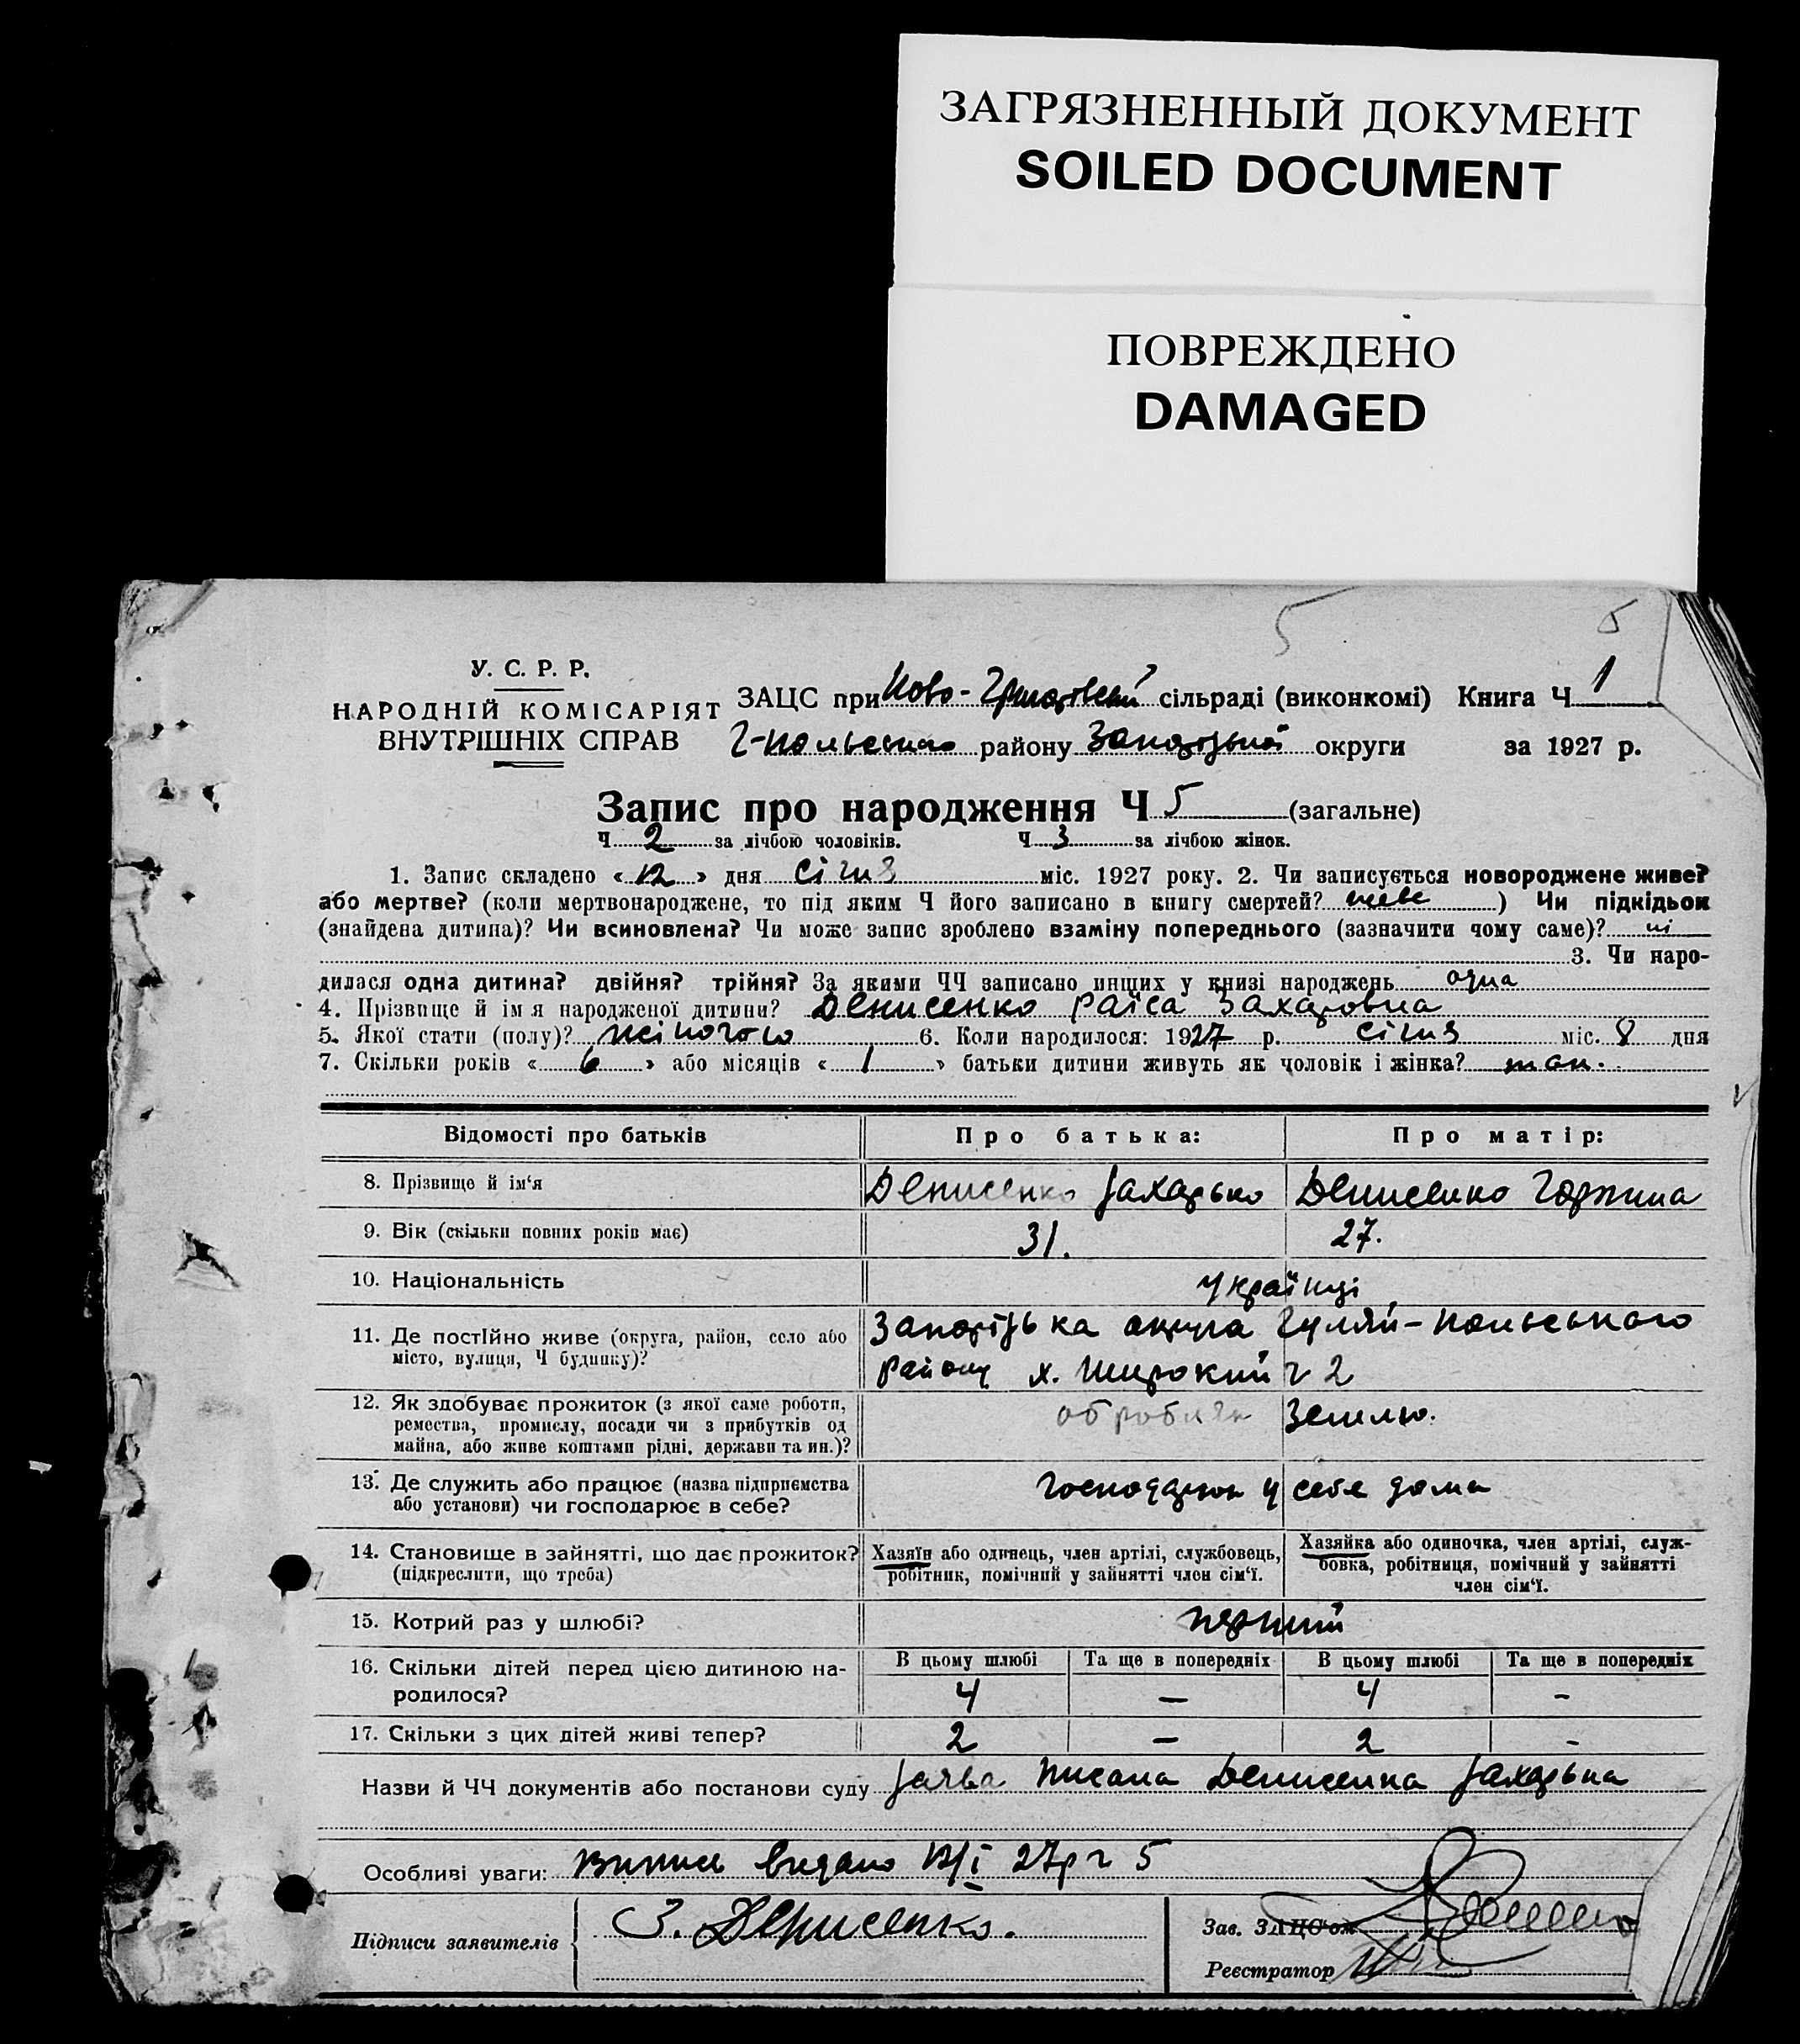 ЗАГРЯЗНЕННЫЙ ДОКУМЕНТ
SOILED DOCUMENT
ПОВРЕЖДЕНО
DAMAGED
5 5
У. С. Р. Р.
НАРОДНІЙ КОМІСАРІЯТ
ВНУТРІШНІХ СПРАВ
ЗАЦС при Ново- сільраді (виконкомі) Книга Ч 1
Г-Польського району Запорізької округи за 1927 р.
Запис про народження Ч 5 (загальне)
Ч 2 за лічбою чоловіків. Ч 3 за лічбою жінок.
1. Запис складено «12» дня січня міс. 1927 року. 2. Чи записується новороджене живе?
або мертве? (коли мертвонароджене, то під яким Ч його записано в книгу смертей? живе ) Чи підкідьок
(знайдена дитина)? Чи всиновлена? Чи може запис зроблено взаміну попереднього (зазначити чому саме)? ні
3. Чи наро-
дилася одна дитина? двійня? трійня? За якими ЧЧ записано инщих у книзі народжень одна
4. Прізвище й ім я народженої дитини? Денисенко Раїса Захаровна
5. Якої стати (полу)? жіночого 6. Коли народилося: 1927 р. січня міс. 8 дня
7. Скільки років « 6 » або місяців « 1 » батьки дитини живуть як чоловік і жінка? так.
Відомості про батьків Про батька: Про матір:
8. Прізвище й ім'я Денисенко Захарько Денисенко Горпина
9. Вік (скільки повних років має) 31. 27.
10. Національність Українці
11. Де постійно живе (округа, район, село або Запорізька округа Гуляй-Польського
місто, вулиця, Ч будинку)? району х. Широкий ч 2
12. Як здобуває прожиток (з якої саме роботи, обробляє землю.
ремества, промислу, посади чи з прибутків од
майна, або живе коштами рідні, держави та ин.)?
13. Де служить або працює (назва підприємства у себе дома
або установи) чи господарює в себе?
14. Становище в зайнятті, що дає прожиток? Хазяїн або одинець, член артілі, службовець, Хазяйка або одиночка, член артілі, служ-
(підкреслити, що треба) робітник, помічний у зайнятті член сім'ї. бовка, робітниця, помічний у зайнятті
член сім'ї.
15. Котрий раз у шлюбі? перший
16. Скільки дітей перед цією дитиною на- В цьому шлюбі Та ще в попередніх В цьому шлюбі Та ще в попередніх
родилося? 4 — 4 -
17. Скільки з цих дітей живі тепер? 2 — 2 -
Назви й ЧЧ документів або постанови суду Заява писана Денисенка Захарька
Особливі уваги: Випись видано 12/I 27р ч 5
Підписи заявителів З. Денисенко. Зав. ЗАЦС'ом
Реєстратор